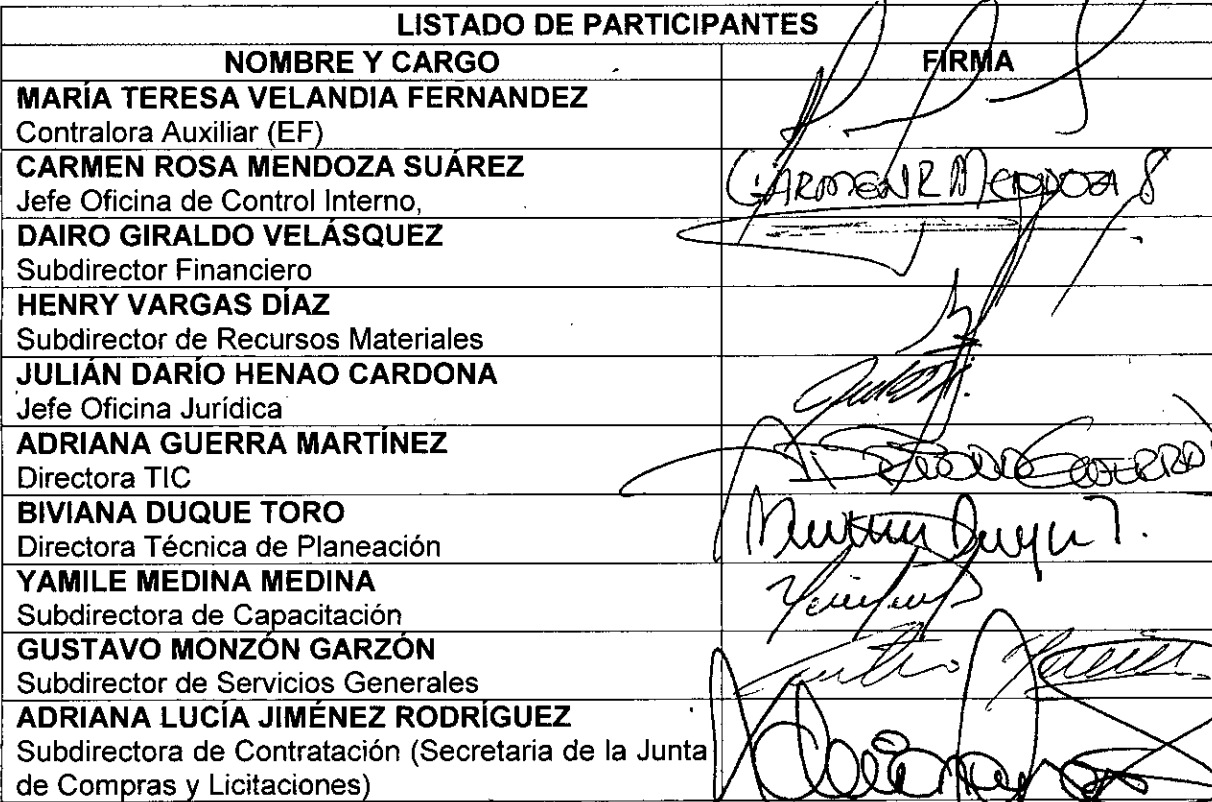 LISTADO DE PARTICIPANTES
NOMBRE Y CARGO FIRMA
MARÍA TERESA VELANDIA FERNANDEZ
Contralora Auxiliar (EF)
CARMEN ROSA MENDOZA SUÁREZ
Jefe Oficina de Control Interno,
CARMEN R MENDOZA S
DAIRO GIRALDO VELÁSQUEZ
Subdirector Financiero
HENRY VARGAS DÍAZ
Subdirector de Recursos Materiales
JULIÁN DARÍO HENAO CARDONA
Jefe Oficina Jurídica
ADRIANA GUERRA MARTÍNEZ
Directora TIC
BIVIANA DUQUE TORO
Directora Técnica de Planeación
Duque T.
YAMILE MEDINA MEDINA
Subdirectora de Capacitación
GUSTAVO MONZÓN GARZÓN
Subdirector de Servicios Generales
ADRIANA LUCÍA JIMÉNEZ RODRÍGUEZ
Subdirectora de Contratación (Secretaria de la Junta
de Compras y Licitaciones)